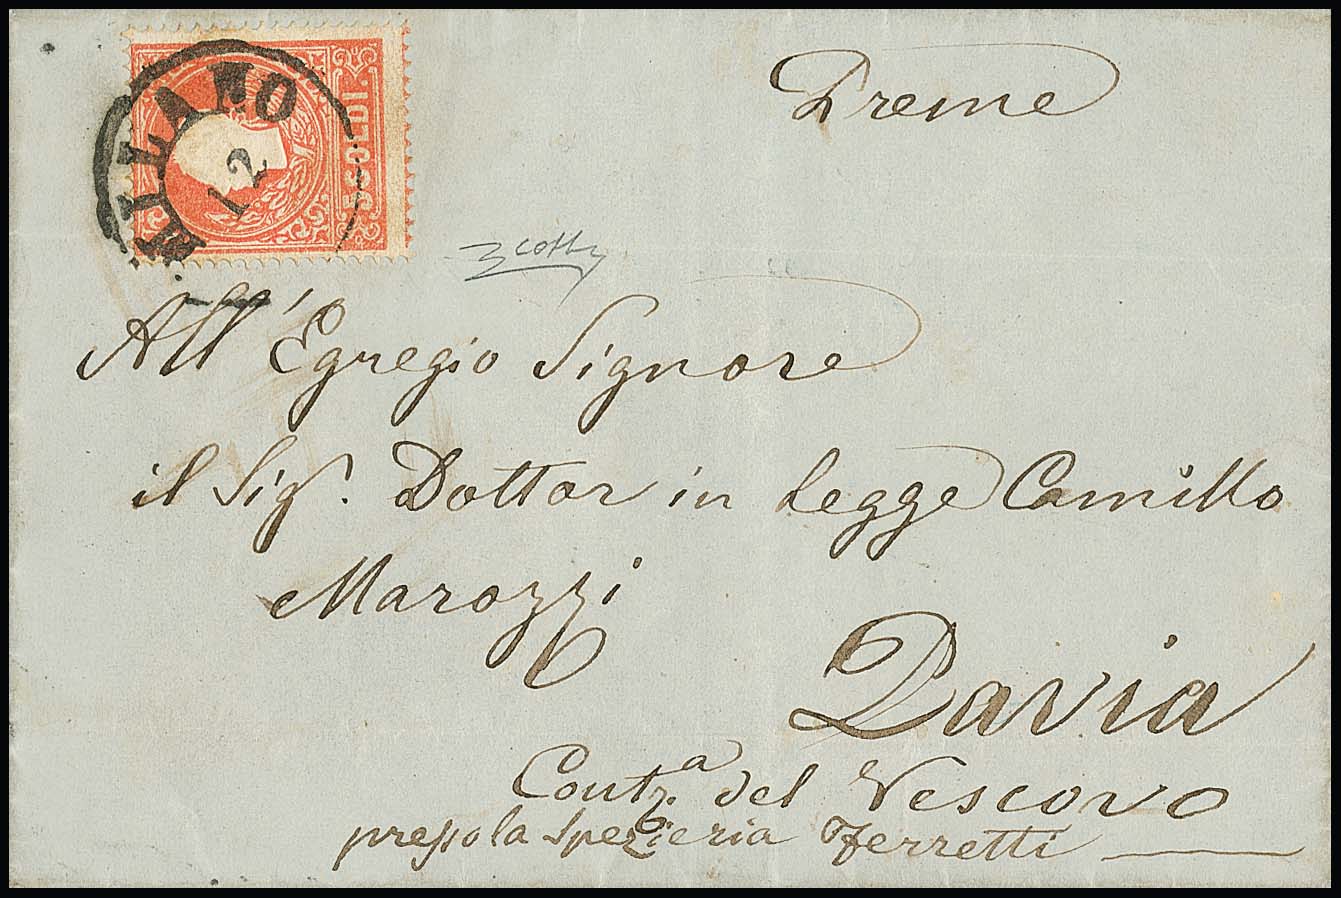 5 SOLDI.
MILANO
12
Preme
All' Egregio Signore
il Sigr. Dottor in Legge Camillo
Marozzi
Pavia
Contr.a del Vescovo
presso la Spezieria Ferretti